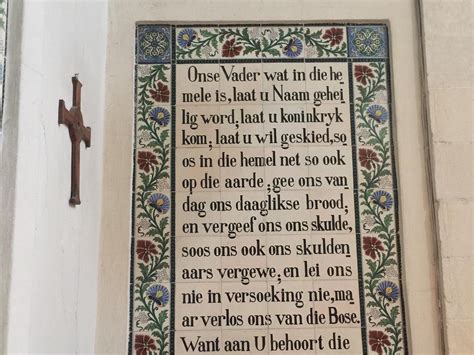 Onse Vader wat in die he
mele is, laat u Naam gehei
lig word, laat u koninkryk
kom, laat u wil geskied, so
os in die hemel net so ook
op die aarde; gee ons van
dag ons daaglikse brood;
en vergeef ons ons skulde,
soos ons ook ons skulden
aars vergewe; en lei ons
nie in versoeking nie, ma
ar verlos ons van die Bose.
Want aan U behoort die